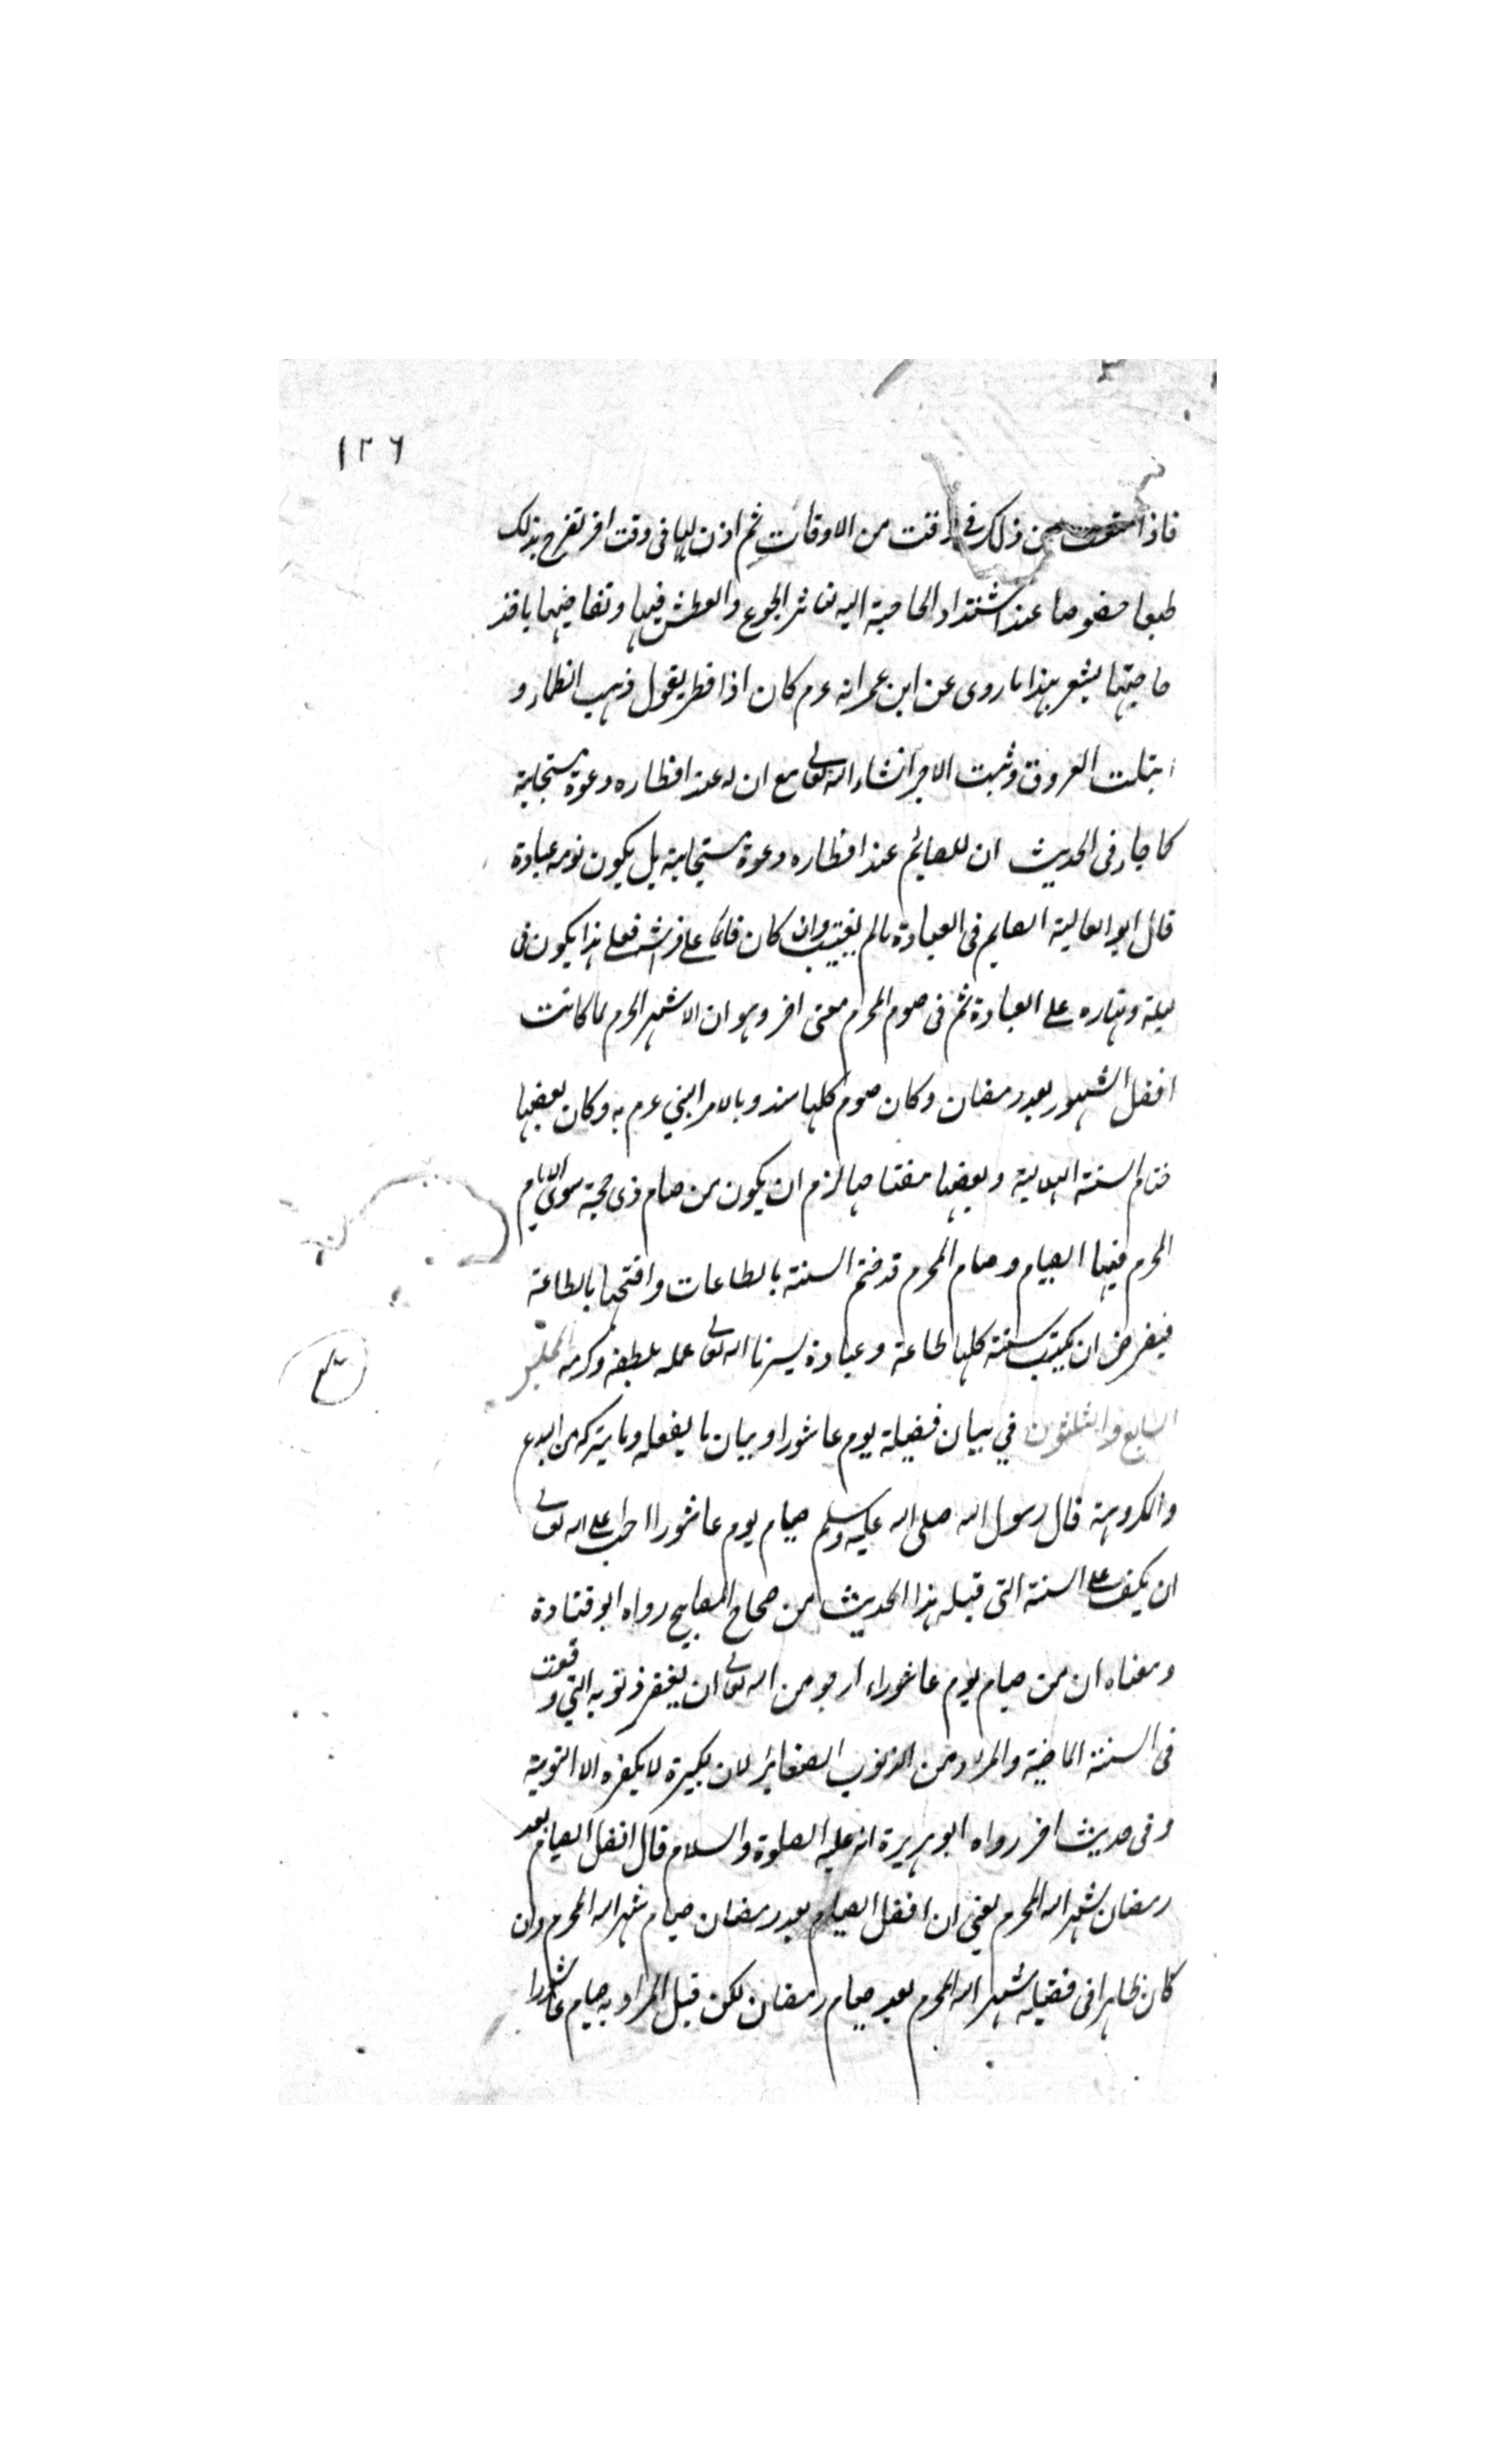 ١٢٦
فاذا من ذلك في وقت من الاوقات ثم اذن لها فى وقت اخر تفرح بذلك
طبعا خصوصا عند اشتداد الحاجة اليه تناثر الجوع والعطش فيها وتقاضيها باخذ
حاجتها يشعر بهذا ما روى عن ابن عمر انه ءم كان اذا فطر يقول ذهب الظماء و
ابتلت العروق وثبت الاجر انشاء الله تعالى مع ان له عند افطاره دعوة مستجابة
كما جاء فى الحديث ان للصائم عند افطاره دعوة مستجابة بل يكون نومه عبادة
قال ابو العالية الصايم فى العبادة مالم يغتب وان كان نائما على فراشه فعلى هذا يكون فى
ليلة ونهاره على العبادة ثم فى صوم المحرم معنى اخر وهو ان الاشهر الحرم لما كانت
افضل الشهور بعد رمضان وكان صوم كلها مندوبا لامر النبي ءم به وكان بعضها
ختام السنة الهلالية وبعضها مفتاحها لزم ان يكون من صام ذى حجة سوى الايام
المحرم فيها الصيام وصام المحرم قد ختم السنة بالطاعات وافتتحها بالطاعة
فيفرض ان يكتب سنته كلها طاعة وعبادة يسرنا الله تعالى عمله بلطفه وكرمه المجلس
السابع والثلثون في بيان فضيلة يوم عاشورا وبيان ما يفعله وما يتركه من البدع
والكروهة قال رسول الله صلى الله عليه وسلم صيام يوم عاشورا احتسب على الله تعالى
ان يكفر على السنة التى قبله هذا الحديث من صحاح المصابيح رواه ابو قتادة
ومعناه ان من صيام يوم عاشوراء ارجو من الله تعالى ان يغفر ذنوبه التي وقعت
فى السنة الماضية والمراد من الذنوب الصغائر لان بكبيرة لا يكفره الا التوبة
وفى حديث اخر رواه ابو هريرة انه عليه الصلوة والسلام قال افضل الصيام بعد
رمضان شهر الله المحرم يعني ان افضل الصيام بعد رمضان صيام شهر الله المحرم وان
كان ظاهرا فى فضيلة شهر الله المحرم بعد صيام رمضان لكن قيل المراد به صيام عاشورا